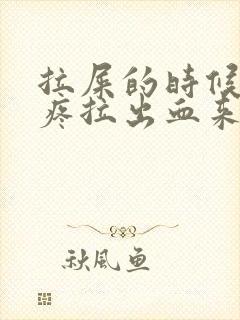 拉屎的时候
疼拉出血来
秋风鱼